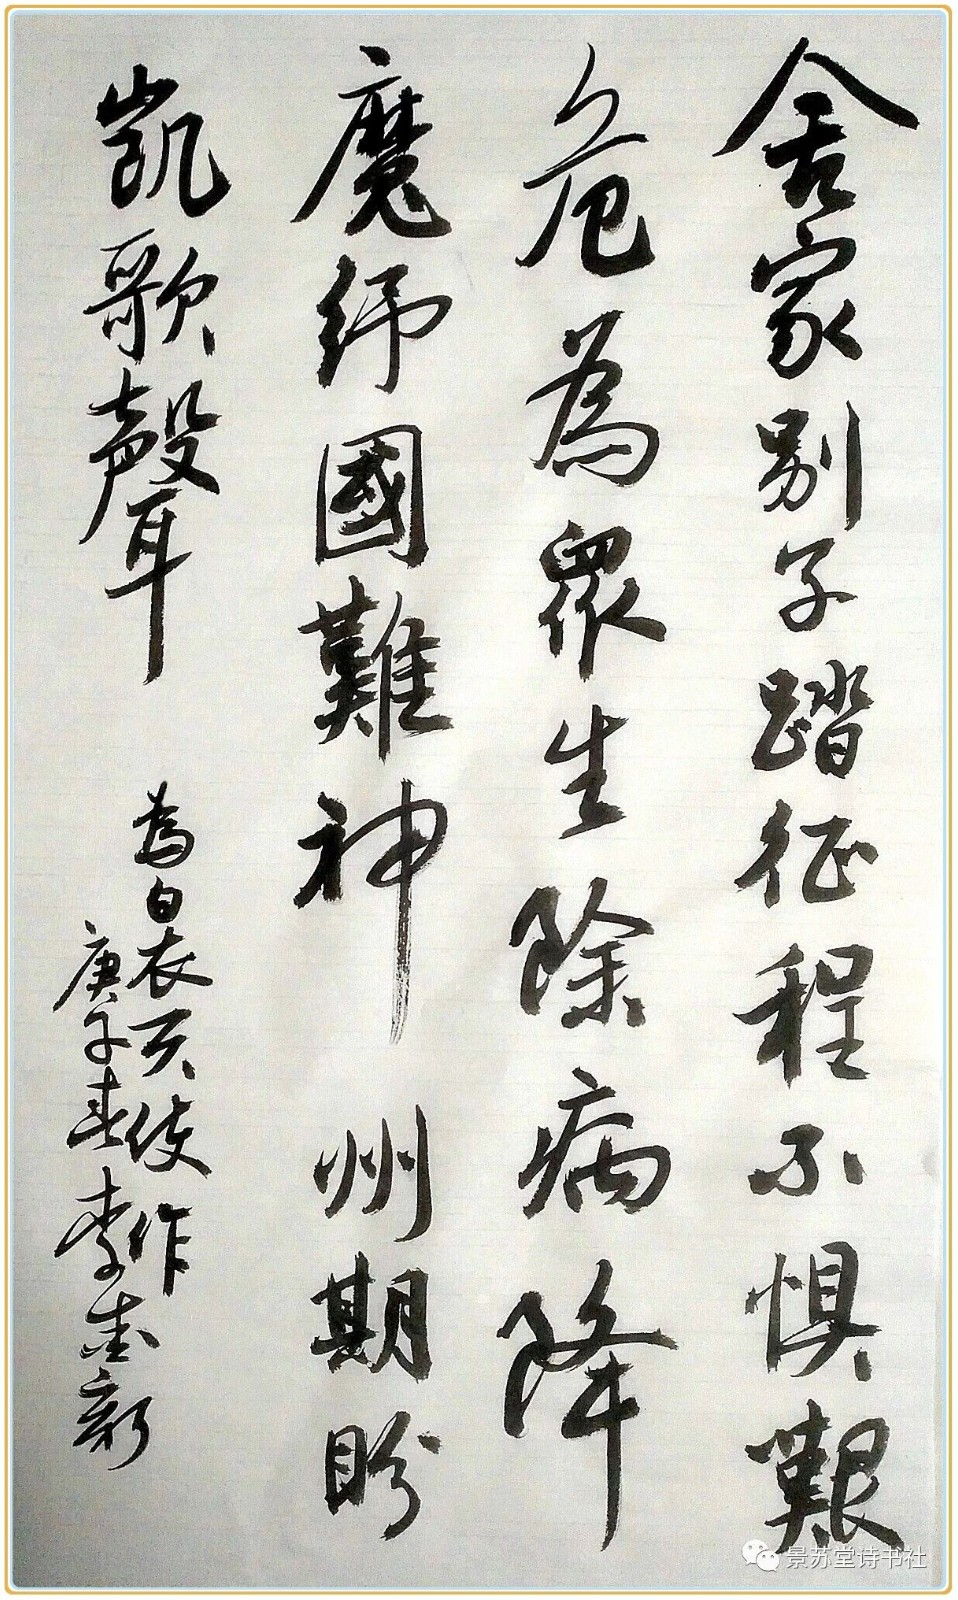 舍家别子踏征程不惧艱
危為眾生除病降
魔紓國難神州期盼
凱歌聲
為白衣天使作
庚子春李志新
景苏堂诗书社